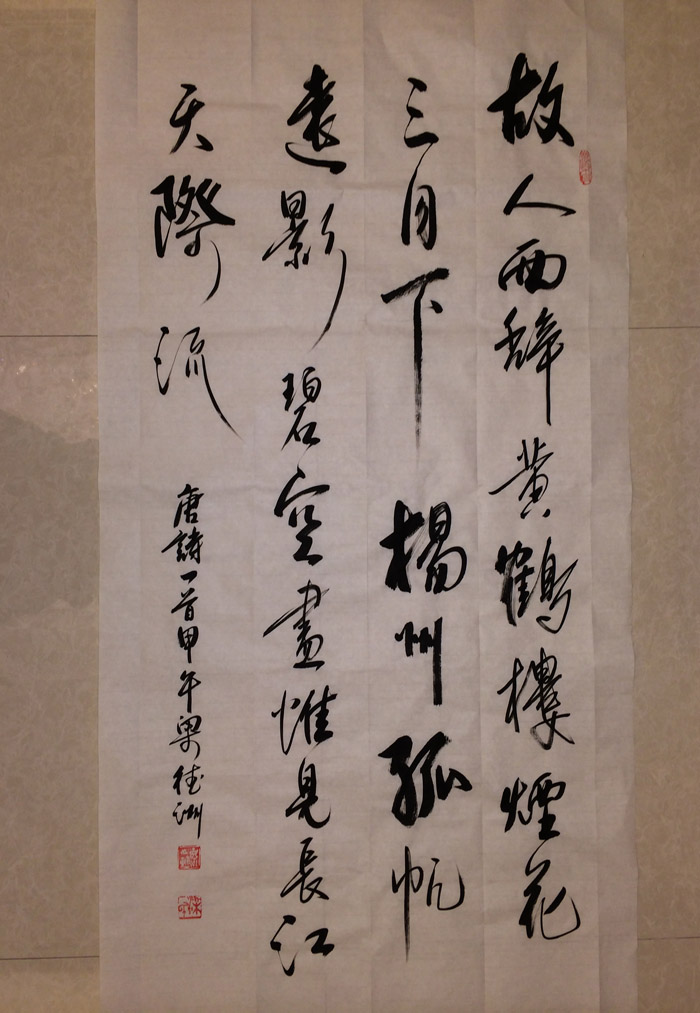 故人西辭黄鶴樓煙花
三月下楊州孤帆
遠影碧空盡惟見長江
天際流
唐詩一首甲午梁德洲